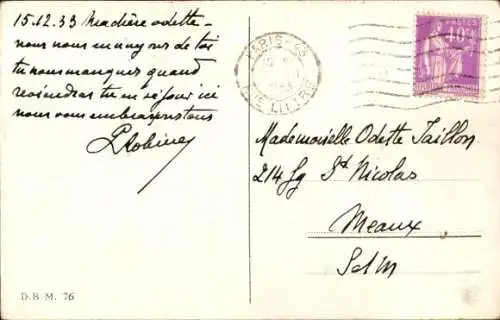 15.12.33 Ma chère Odette –
nous nous ennuyons de toi
tu nous manques quand
reviendras tu me séjour ici
nous vous embrassons tous
PARIS-53
RUE LITTRÉ
POSTES
40c
Mademoiselle Odette Taillon
214 Fg St Nicolas
Meaux
S et M
D.B.M. 76